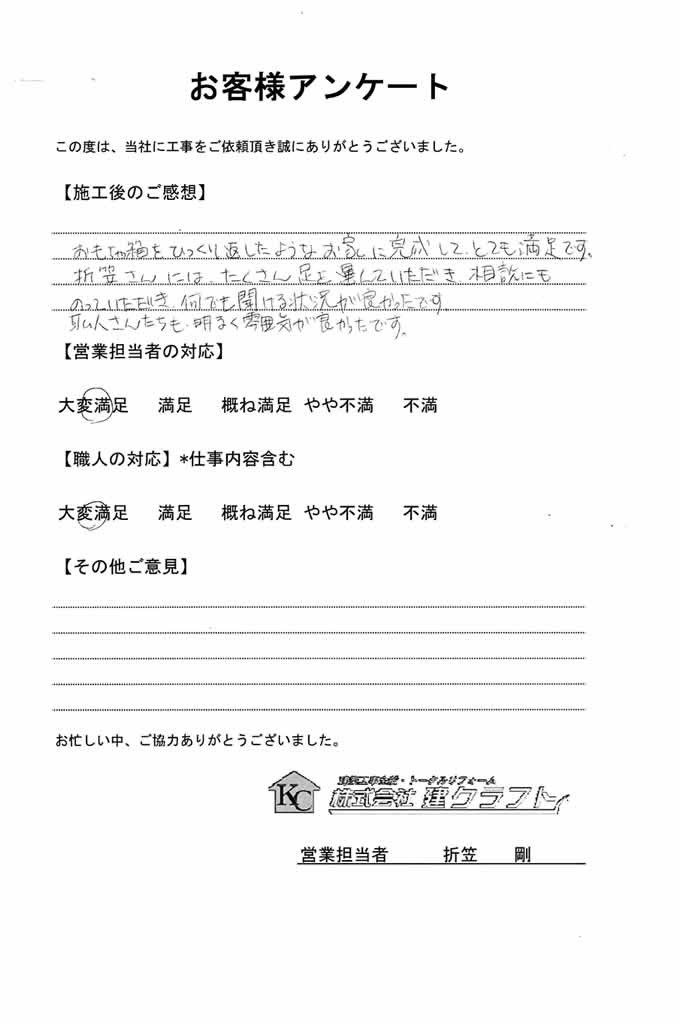 お客様アンケート
この度は、当社に工事をご依頼頂き誠にありがとうございました。
【施工後のご感想】
おもちゃ箱をひっくり返したようなお家に完成して、とても満足です。
折笠さんには、たくさん足を運んでいただき 相談にも
のっていただき、何でも聞ける状況が良かったです
職人さんたちも、明るく雰囲気が良かったです。
【営業担当者の対応】
大変満足 満足 概ね満足 やや不満 不満
【職人の対応】*仕事内容含む
大変満足 満足 概ね満足 やや不満 不満
【その他ご意見】
お忙しい中、ご協力ありがとうございました。
KC
建築工事全般・トータルリフォーム
株式会社 建クラフト
営業担当者 折笠 剛